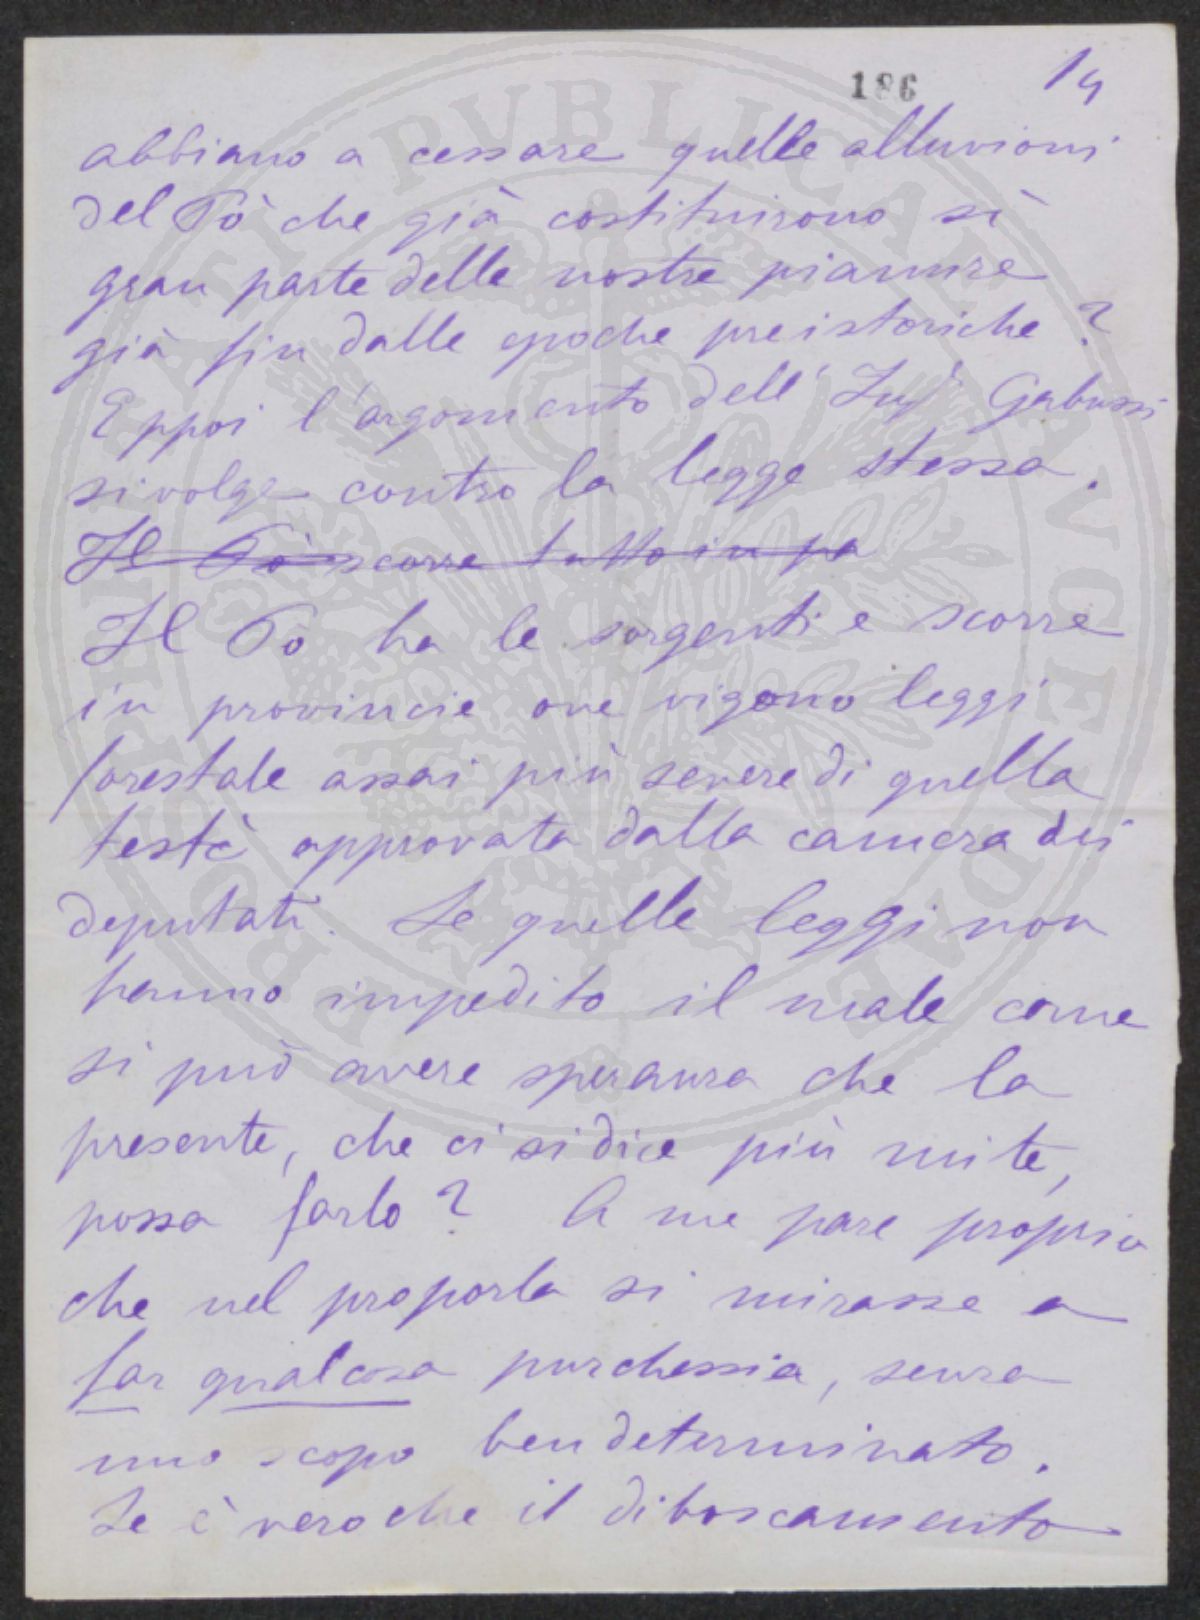 186 14
abbiano a cessare quelle alluvioni
del Pò che già costituirono sì
gran parte delle nostre pianure
già fin dalle epoche preistoriche?
Eppoi l'argomento dell' Ing.r Gabussi
si volge contro la legge stessa.
Il Pò scorre tutto in pa
Il Po ha le sorgenti e scorre
in provincie ove vigono leggi
forestale assai più severe di quella
testè approvata dalla camera dei
deputati. Se quelle leggi non
hanno impedito il male come
si può avere speranza che la
presente, che ci si dice più mite,
possa farlo? A me pare proprio
che nel proporla si mirasse a
far qualcosa purchessia, senza
uno scopo ben determinato.
Se è vero che il diboscamento